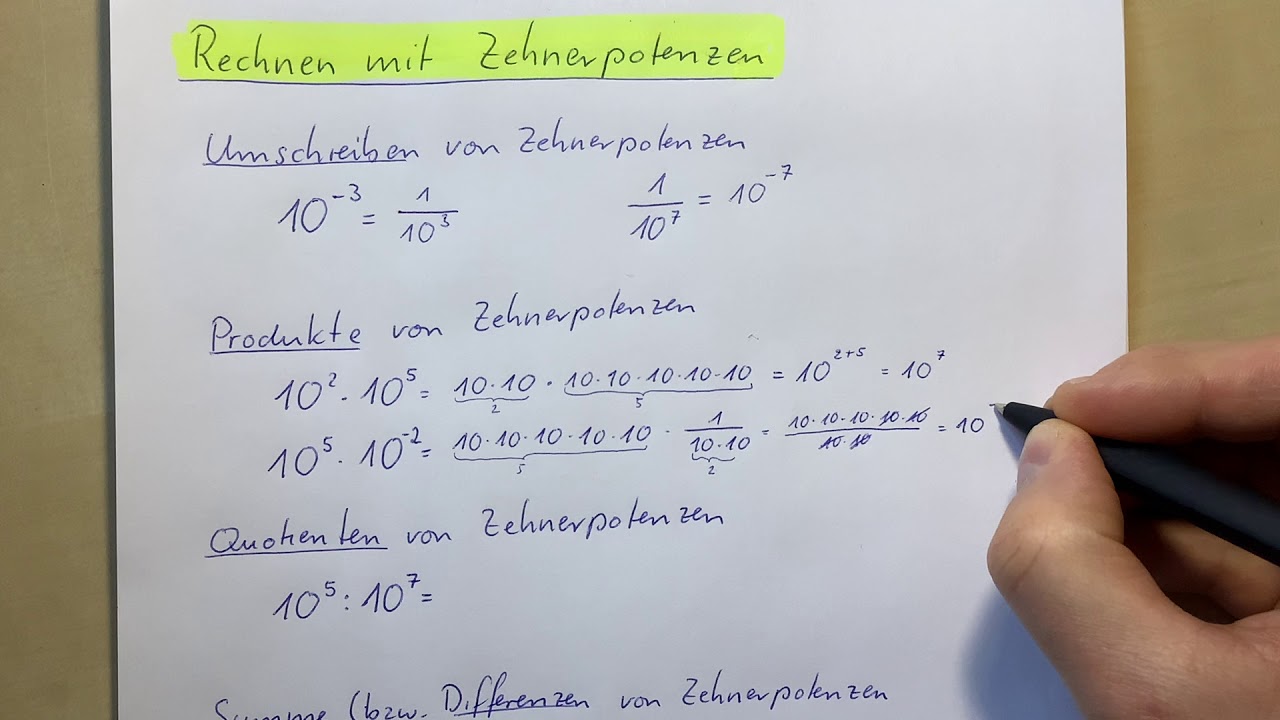 Rechnen mit Zehnerpotenzen
Umschreiben von Zehnerpotenzen
10⁻³ = 1/10³    1/10⁷ = 10⁻⁷
Produkte von Zehnerpotenzen
10² · 10⁵ = 10·10 · 10·10·10·10·10 = 10²⁺⁵ = 10⁷
2 5
10⁵ · 10⁻² = 10·10·10·10·10 · 1/10·10 = 10·10·10·10·10/10·10 = 10
5 2
Quotienten von Zehnerpotenzen
10⁵ : 10⁷ =
Summe (bzw. Differenzen von Zehnerpotenzen